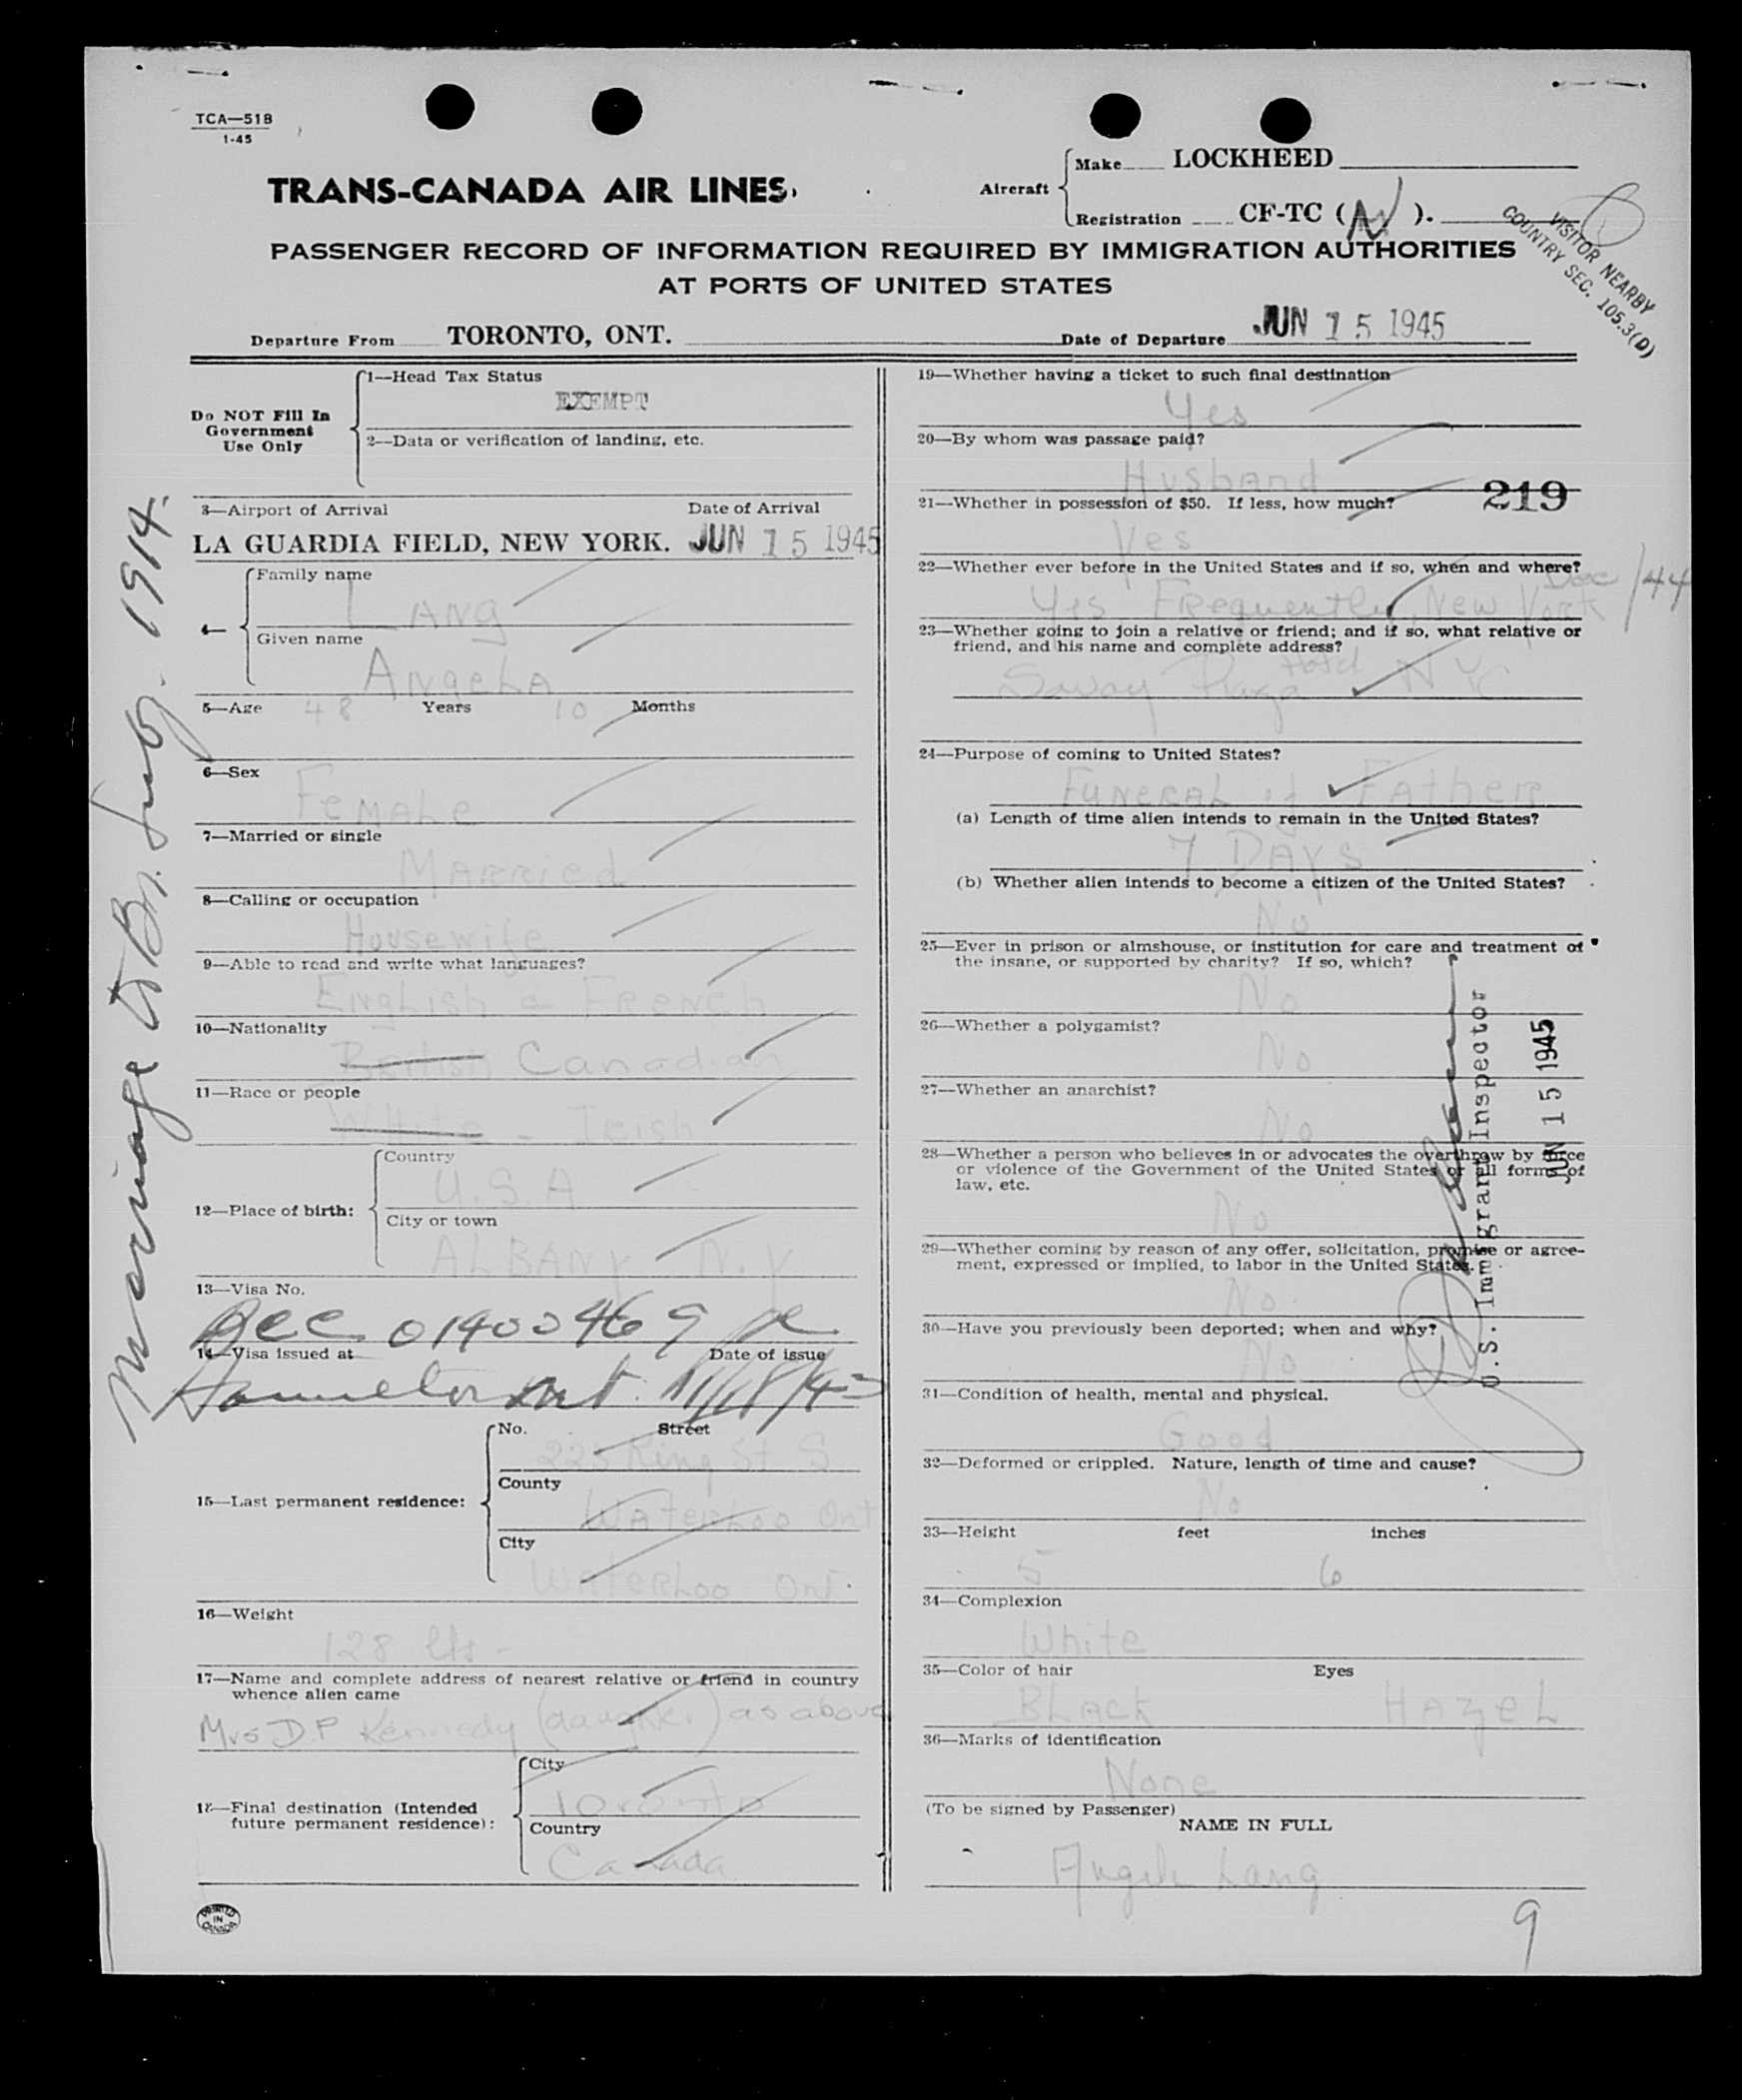 TCA—518
1-45
TRANS-CANADA AIR LINES
Aircraft
Make LOCKHEED
Registration CF-TC ( N ).
VISITOR NEARBY
COUNTRY SEC. 105.3(D)
PASSENGER RECORD OF INFORMATION REQUIRED BY IMMIGRATION AUTHORITIES
AT PORTS OF UNITED STATES
Departure From TORONTO, ONT.
Date of Departure JUN 15 1945
Do NOT Fill In
Government
Use Only
1—Head Tax Status
EXEMPT
2—Data or verification of landing, etc.
3—Airport of Arrival Date of Arrival
LA GUARDIA FIELD, NEW YORK. JUN 15 1945
4—
Family name
LANg
Given name
AngeLA
5—Age 48 Years 10 Months
6—Sex
FeMALe
7—Married or single
MARRied
8—Calling or occupation
Housewife
9—Able to read and write what languages?
ENgLish & FRench
10—Nationality
British Canadian
11—Race or people
White - Irish
12—Place of birth:
Country
U.S.A
City or town
ALBANY N.Y
13—Visa No.
Bcc 01400469
14—Visa issued at Date of issue
Hamilton Ont.
15—Last permanent residence:
No. Street
225 King St S
County
Waterloo Ont
City
WateRLoo Ont.
16—Weight
128 lbs -
17—Name and complete address of nearest relative or friend in country
whence alien came
Mrs D.P Kennedy (daughter) as above
18—Final destination (Intended
future permanent residence):
City
Toronto
Country
Canada
PRINTED
IN
CANADA
Marriage to Br. Subj. 1914.
19—Whether having a ticket to such final destination
Yes
20—By whom was passage paid?
Husband
219
21—Whether in possession of $50. If less, how much?
Yes
22—Whether ever before in the United States and if so, when and where?
Dec /44
Yes Frequently, New York
23—Whether going to join a relative or friend; and if so, what relative or
friend, and his name and complete address?
Savoy Plaza Hotel NYC
24—Purpose of coming to United States?
FUNERAL of FatheR
(a) Length of time alien intends to remain in the United States?
7 DAYS
(b) Whether alien intends to become a citizen of the United States?
No
25—Ever in prison or almshouse, or institution for care and treatment of
the insane, or supported by charity? If so, which?
No
26—Whether a polygamist?
No
27—Whether an anarchist?
No
28—Whether a person who believes in or advocates the overthrow by force
or violence of the Government of the United States or all forms of
law, etc.
No
29—Whether coming by reason of any offer, solicitation, promise or agree-
ment, expressed or implied, to labor in the United States.
No
30—Have you previously been deported; when and why?
No
31—Condition of health, mental and physical.
Good
32—Deformed or crippled. Nature, length of time and cause?
No
33—Height feet inches
5 6
34—Complexion
White
35—Color of hair Eyes
BLACK HAzeL
36—Marks of identification
None
(To be signed by Passenger)
NAME IN FULL
Angela Lang
U.S. Immigrant Inspector
JUN 15 1945
9